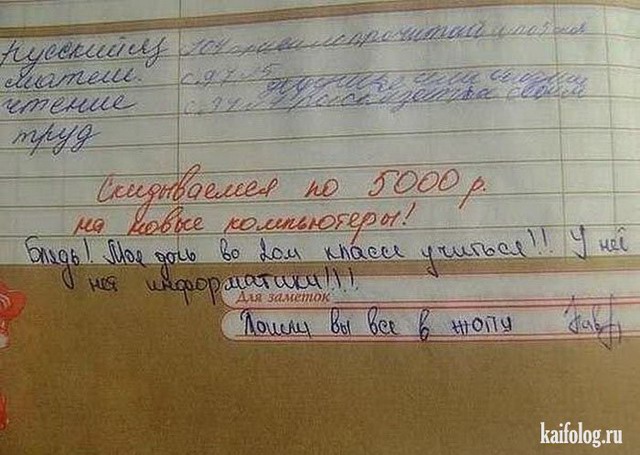 Русский яз
матем. с.97 №5
чтение
труд
Скидываемся по 5000 р.
на новые компьютеры!
Блядь! Моя дочь во 2ом классе учиться!! У неё
нет информатики!!!!
Для заметок
Пошли вы все в жопу
kaifolog.ru